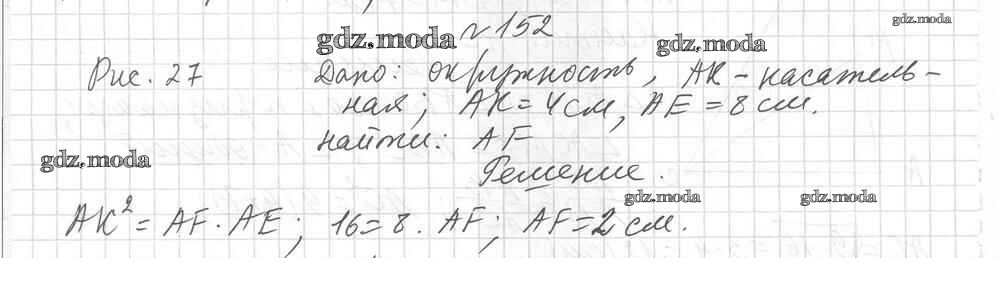 gdz.moda
gdz.moda № 152 gdz.moda
Рис. 27 Дано: окружность, АК - касатель-
ная; АК = 4 см, АЕ = 8 см.
найти: AF
gdz.moda
Решение.
gdz.moda gdz.moda
АК² = AF · АЕ; 16 = 8 · AF; AF = 2 см.